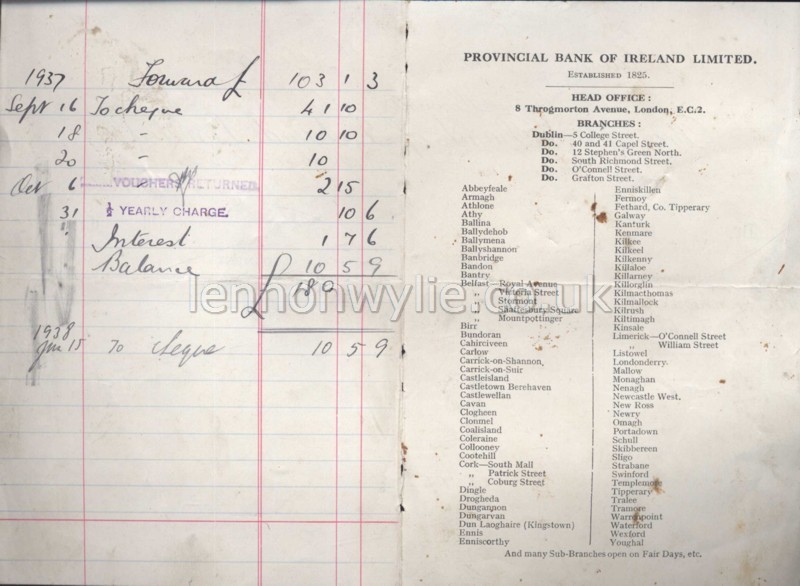 1937 Forward £ 103 1 3
Sept 16 To cheque 41 10
18 " 10 10
20 " 10
Oct 6 VOUCHER RETURNED. 2 15
31 ½ YEARLY CHARGE. 10 6
" Interest 1 7 6
Balance 10 5 9
£ 180
1938
Jan 15 To cheque 10 5 9
PROVINCIAL BANK OF IRELAND LIMITED.
ESTABLISHED 1825.
HEAD OFFICE:
8 Throgmorton Avenue, London, E.C.2.
BRANCHES:
Dublin—5 College Street.
Do. 40 and 41 Capel Street.
Do. 12 Stephen's Green North.
Do. South Richmond Street.
Do. O'Connell Street.
Do. Grafton Street.
Abbeyfeale
Armagh
Athlone
Athy
Ballina
Ballydehob
Ballymena
Ballyshannon
Banbridge
Bandon
Bantry
Belfast—Royal Avenue
„ Victoria Street
„ Stormont
„ Shaftesbury Square
„ Mountpottinger
Birr
Bundoran
Cahirciveen
Carlow
Carrick-on-Shannon
Carrick-on-Suir
Castleisland
Castletown Berehaven
Castlewellan
Cavan
Clogheen
Clonmel
Coalisland
Coleraine
Collooney
Cootehill
Cork—South Mall
„ Patrick Street
„ Coburg Street
Dingle
Drogheda
Dungannon
Dungarvan
Dun Laoghaire (Kingstown)
Ennis
Enniscorthy
Enniskillen
Fermoy
Fethard, Co. Tipperary
Galway
Kanturk
Kenmare
Kilkee
Kilkeel
Kilkenny
Killaloe
Killarney
Killorglin
Kilmacthomas
Kilmallock
Kilrush
Kiltimagh
Kinsale
Limerick—O'Connell Street
„ William Street
Listowel
Londonderry
Mallow
Monaghan
Nenagh
Newcastle West.
New Ross
Newry
Omagh
Portadown
Schull
Skibbereen
Sligo
Strabane
Swinford
Templemore
Tipperary
Tralee
Tramore
Warrenpoint
Waterford
Wexford
Youghal
And many Sub-Branches open on Fair Days, etc.
lennonwylie.co.uk